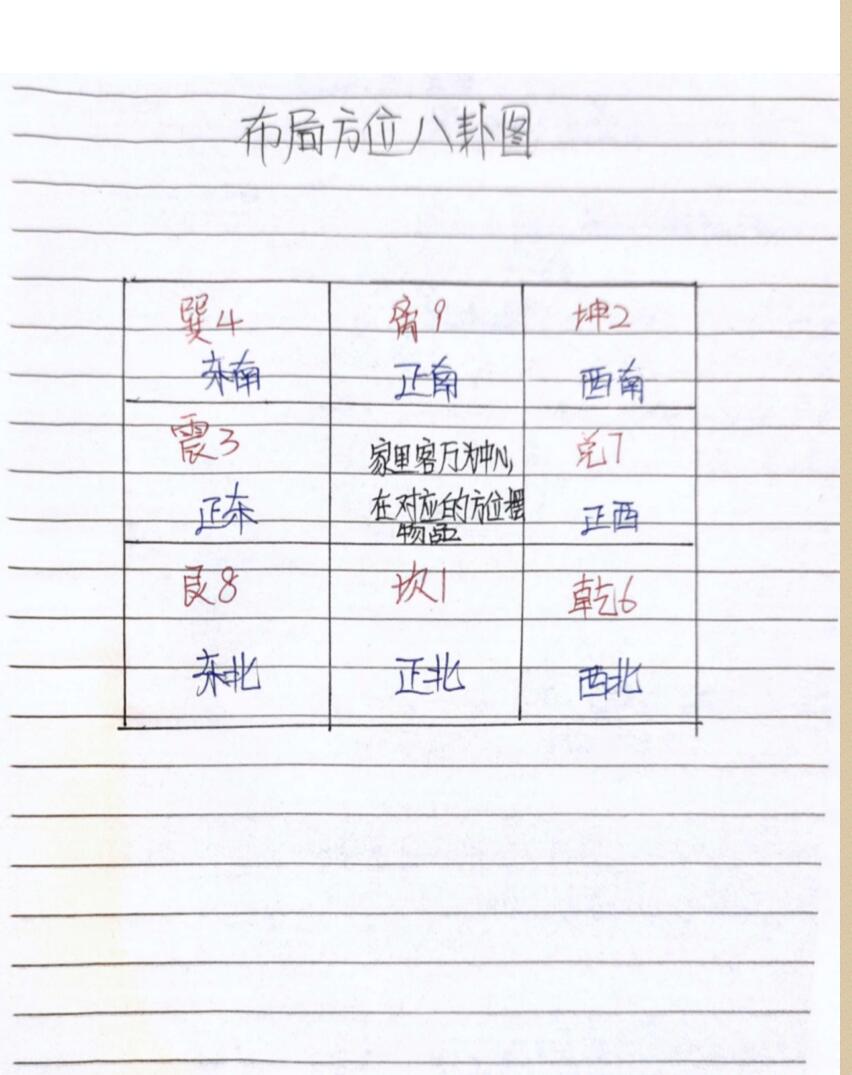 布局方位八卦图
巽4
离9
坤2
东南
正南
西南
震3
家里客厅为中心,
兑7
在对应的方位摆
物品
正东
正西
艮8
坎1
乾6
东北
正北
西北